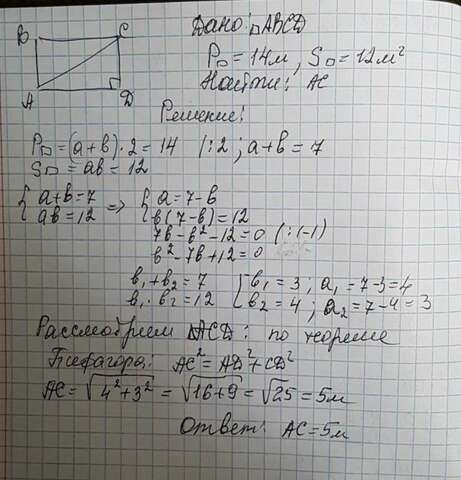 B C
Дано: ▭ABCD
P▭ = 14м, S▭ = 12м²
Найти: AC
A D
Решение:
P▭ = (a+b)·2 = 14 | :2 ; a+b = 7
S▭ = ab = 12
{ a+b = 7 => { a = 7-b
ab = 12 b(7-b) = 12
7b - b² - 12 = 0 | :(-1)
b² - 7b + 12 = 0
b₁ + b₂ = 7 { b₁ = 3 ; a₁ = 7-3 = 4
b₁ · b₂ = 12 b₂ = 4 ; a₂ = 7-4 = 3
Рассмотрим △ACD: по теореме
Пифагора: AC² = AD² + CD²
AC = √4²+3² = √16+9 = √25 = 5м
Ответ: AC = 5м